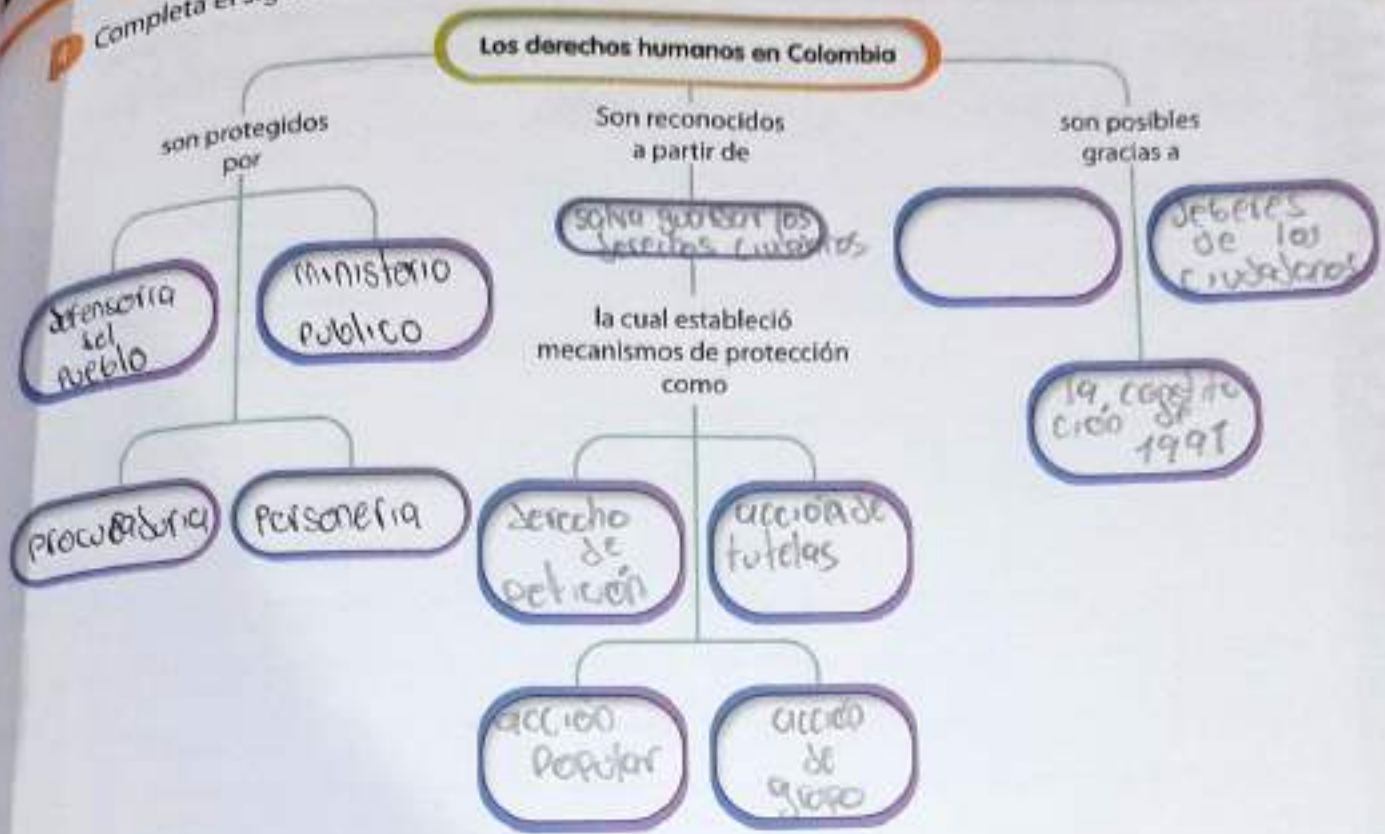 Completa el sig
Los derechos humanos en Colombia
son protegidos
por
defensoria
del
pueblo
ministerio
publico
procuraduria
personeria
Son reconocidos
a partir de
salva guardar los
derechos
la cual estableció
mecanismos de protección
como
derecho
de
petición
acción de
tutelas
acción
popular
acción
de
grupo
son posibles
gracias a
deberes
de los
ciudadanos
la constitu
ción de
1991